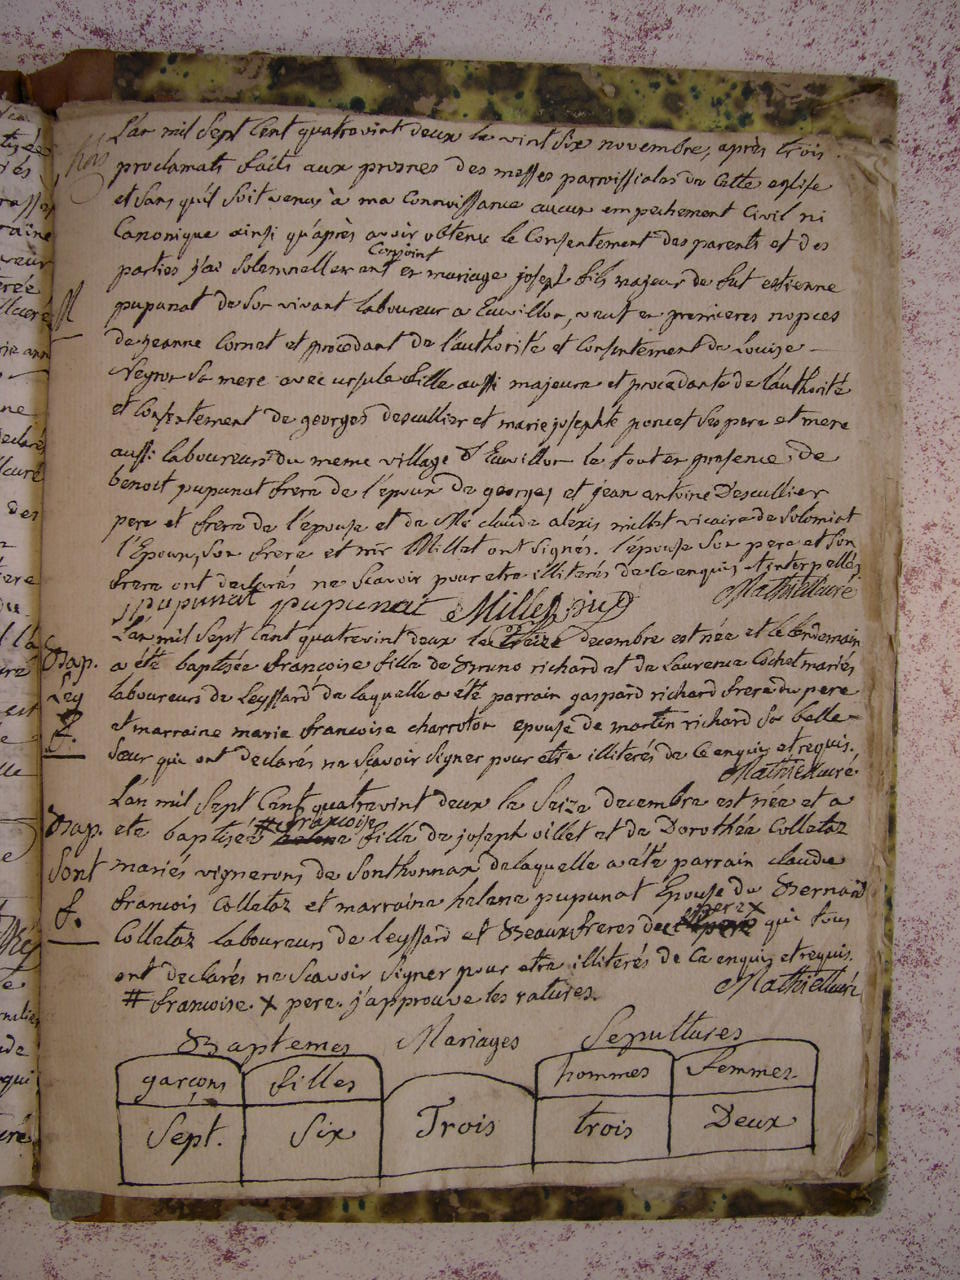 L'an mil sept cent quatrevint deux le vint six novembre, après trois
proclamats faits aux prosnes des messes parroissiales de cette eglise
et sans qu'il soit venu à ma connoissance aucun empechement civil ni
canonique ainsi qu'après avoir obtenu le consentement des parents et des
conjoint
parties j'ai solemnellement en mariage joseph fils majeur de fut estienne
pupunat de son vivant laboureur a Euvillon, veuf en premieres nopces
de jeanne Cornet et procedant de l'authorité et consentement de Louise
Neyron sa mere avec ursule fille aussi majeure et procedante de l'authorité
et consentement de georges descullier et marie josephte poncet ses pere et mere
aussi laboureurs du meme village d'Euvillon le tout en presence de
benoit pupunat frere de l'epoux de georges et jean antoine Descullier
pere et frere de l'epouse et de Mre claude alexis millet vicaire de Solomiat
l'Epoux, son frere et mr Millet ont signés. l'épouse son pere et son
frere ont declarés ne scavoir pour etre illiterés de ce enquis et interpellés
j pupunat pupunat Millet Mathieu curé
Bap.
Ley
f.
L'an mil sept cent quatrevint deux le treize decembre est née et le lendemain
a été baptisée francoise fille de Bruno richard et de Laurence Cochet mariés
laboureurs de Leyssard de laquelle a été parrain gaspard richard frere du pere
et marraine marie francoise charroton epouse de martin richard sa belle-
sœur qui ont declarés ne scavoir signer pour etre illiterés de ce enquis et requis.
Mathieu curé
Bap.
Sont
f.
L'an mil sept cent quatrevint deux le seize decembre est née et a
# francoise
eté baptisée fille de joseph villet et de Dorothée Colletaz
mariés vignerons de Sonthonnax de laquelle a été parrain claude
francois Colletaz et marraine helene pupunat Epouse de Bernard
pere x
Colletaz laboureurs de leyssard et Beauxfreres de qui tous
ont declarés ne scavoir signer pour etre illiterés de ce enquis et requis.
# francoise. x pere. j'approuve les ratures. Mathieu curé
Baptemes Mariages Sepultures
garçons filles hommes femmes
Sept. Six Trois trois Deux